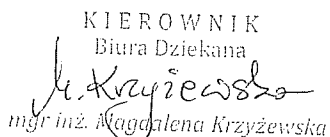 KIEROWNIK
Biura Dziekana
M. Krzyżewska
mgr inż. Magdalena Krzyżewska